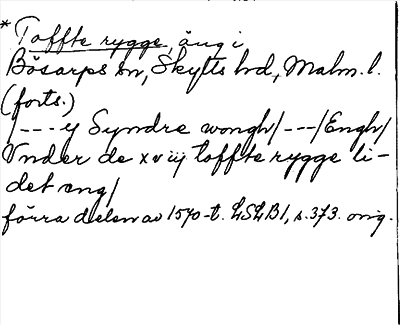 * Toffte rygge, äng i
Bösarps sn, Skytts hd, Malm. l.
(forts.)
/---y Syndre wongh/---/Engh/
Vnder de xviij toffte rygge li-
det eng/
förra delen av 1570-t. LSLB1, s. 373. orig.